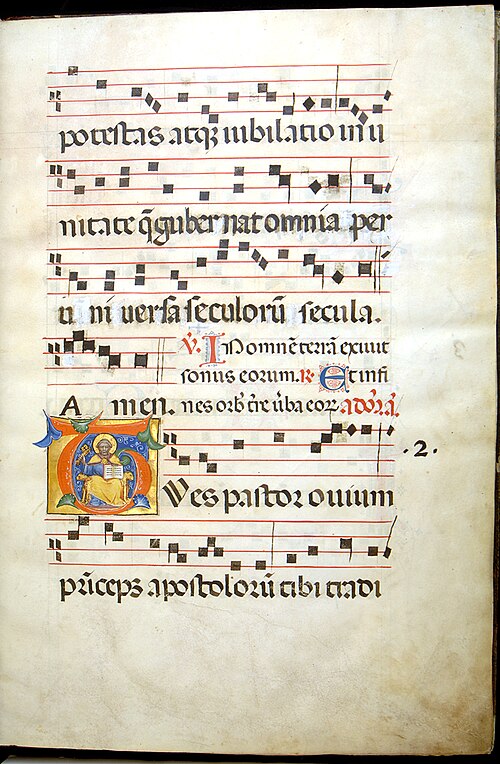 potestas atqʒ iubilatio in u
nitate q̄ gubernat omnia per
u ni uersa seculorū secula.
℣. In omnē terrā exiuit
sonus eorum. ℟. Et in fi
A men. nes orb̄ tr̄e ūba eoꝝ ad ōrā.
.2.
Ves pastor ouium
pn̄ceps apostolorū tibi tradi